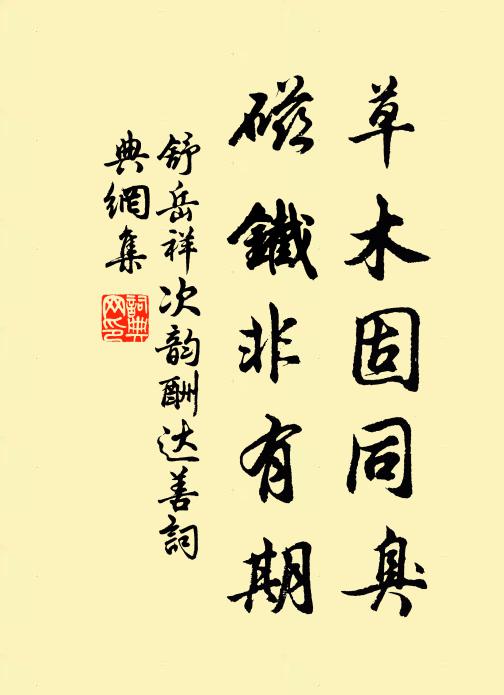 草木固同臭
磁鐵非有期
舒岳祥次韵酬达善詞
典網集
詞典網印